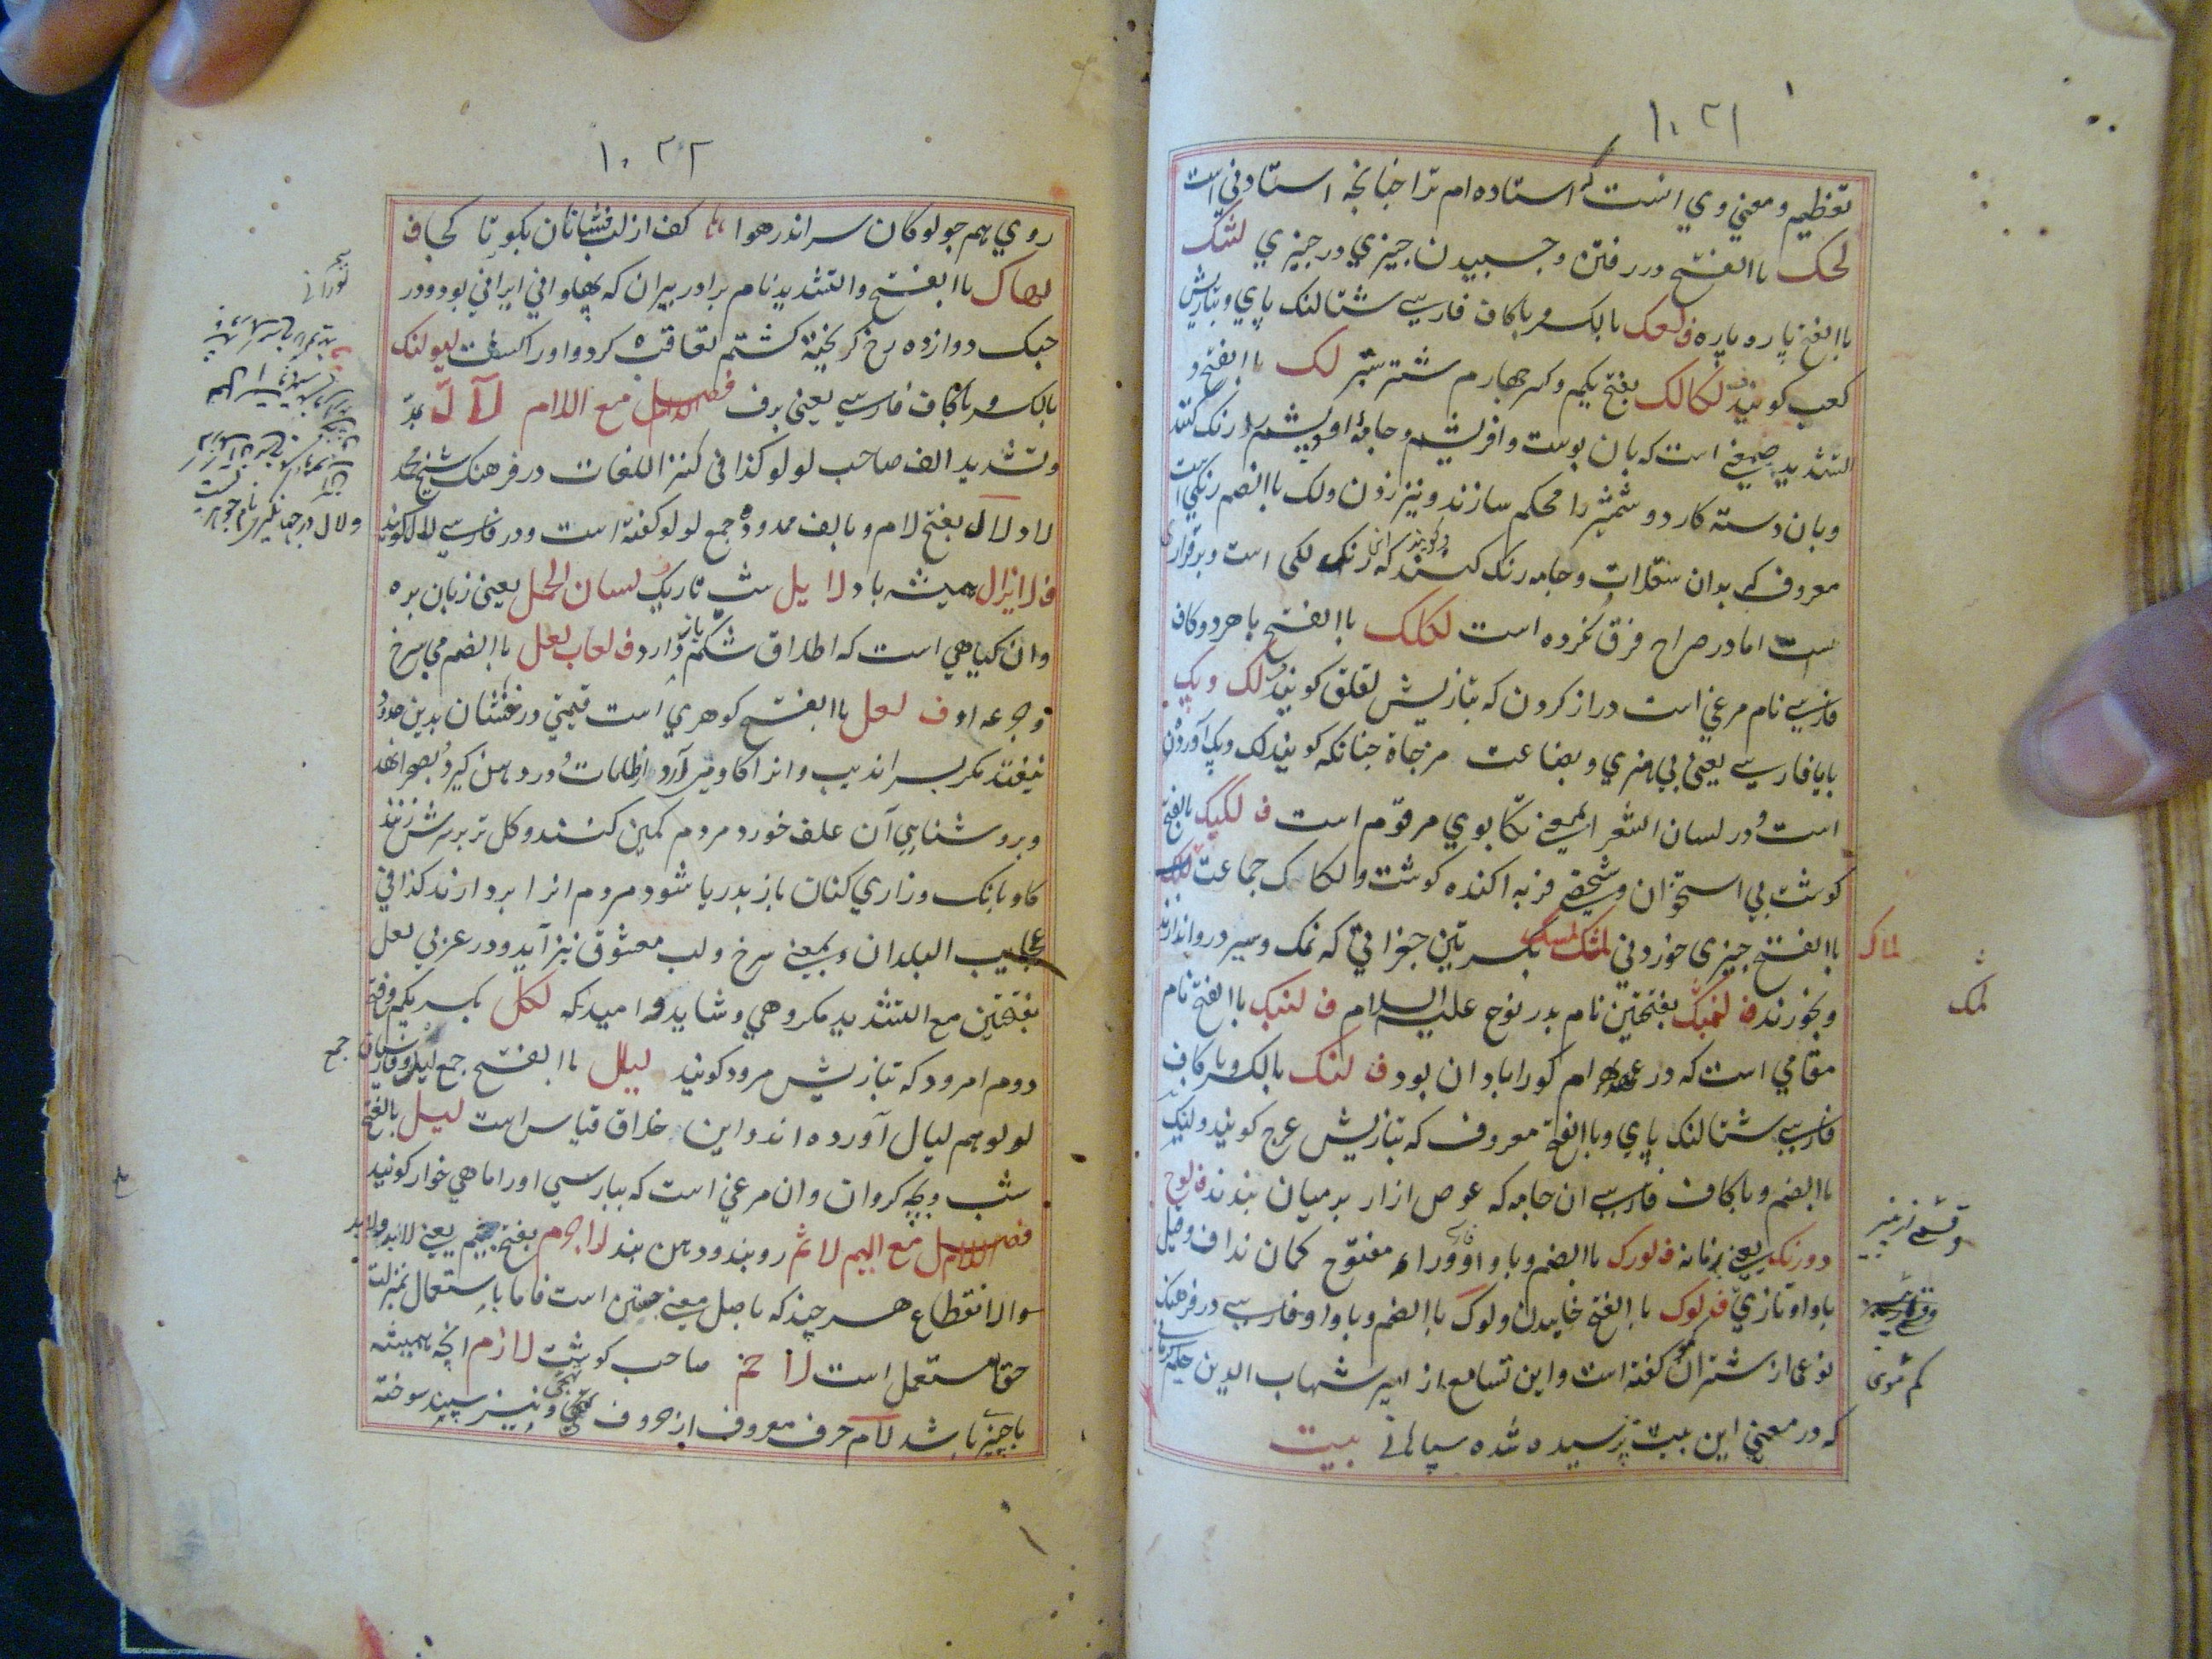 ۱۰۲۱
تعظیم و معنی وی انست که استاده ام ترا چنانچه استادنی است
لحک باالفتح دررفتن و چسبیدن چیزی در چیزی لشک
باالفتح پاره پاره ف لعک بالکسر و باکاف فارسی شتالنک پای و بتازیش
کعب کویند لکالک بفتح یکم و کسر چهارم شتر ستبر لک باالفتح و
التشدید صمغی است که بان پوست و افریشم و جامه او پشم را رنک کنند
و بان دسته کارد و شمشیر را محکم سازند و نیز زدن و لک باالضم رنکی است
معروف که بدان سقلات و جامه رنک کنند که رنک لکی است و برقراری
ست اما در صراح فرق نکرده است لکلک باالفتح باهر دو کاف
فارسی نام مرغی است دراز کردن که بتازیش لقلق کویند لک و پک
باپا فارسی یعنی بی هنری و بضاعت مزجاة چنانکه کویند لک و پک آوردن
است و در لسان الشعرا بمعنی تکاپوی مرقوم است ف لکیک بالفتح
کوشت بی استخوان و شخصی فربه اکنده کوشت و لکالک جماعت
باالفتح چیزی خوردنی لمشک بکسرتین جغراتی که نمک و سیر درو اندازند
و بخورند ف لمک بفتحتین نام پدر نوح علیه السلام ف لنبک باالفتح نام
مقامی است که در عهد بهرام کور ابادان بود ف لنک بالکسر و باکاف
فارسی شتالنک پای و باالفتح معروف که بتازیش عرج کویند و لنک
باالضم و باکاف فارسی ان جامه که عوض ازار بر میان بندند ف لوح
دورنک یعنی زمانه ف لورک باالضم و با واو و راء مفتوح کمان نداف و قیل
باواو تازی ف لوک باالفتح خاییدن و لوک باالضم و باواو فارسی در فرهنک
نوعی از شتران کفته است و این تسامع از امیر شهاب الدین حکیم کرمانی
که در معنی این بیت پرسیده شده سپاهانی بیت
لماک
لمک
وقسمی زنجبیر
کم موی
۱۰۲۲
روی بهم چو لوکان سر اندر هوا تا کف از لب فشانان بکو تا کجا ف
لهاک باالفتح و التشدید نام برادر پیران که پهلوانی ایرانی بود و در
جنک دوازده رخ کریخته کستهم تعاقب کرد و اورا کشت لیولنک
بالکسر و باکاف فارسی یعنی برف فصل اللام مع اللام لآل بمد
و تشدید الف صاحب لولو کذا فی کنز اللغات در فرهنک شیخ محمد
لاد لال بفتح لام و بالف ممدوده جمع لولو کفته است و در فارسی لال کویند
ف لایزال همیشه باد لایل شب تاریک لسان الحمل یعنی زبان بره
و ان کیاهی است که اطلاق شکم باز دارد ف لعاب لعل باالضم می سرخ
و جرعه او ف لعل باالفتح کوهری است قیمتی و رخشان بدین حدود
نیفتد مکر بسراندیب و انرا کاو میش آرد از ظلمات و در دهن کیرد و بصحرا نهد
و بروشنایی آن علف خورد مردم کمین کنند و کل تر بر سرش زنند
کاو بانک و زاری کنان باز بدریا شود مردم انرا بردارند کذا فی
عجایب البلدان و بمعنی سرخ و لب معشوق نیز آید و در عربی لعل
بفتحتین مع التشدید مکروهی و شاید و امیدنکه لکل بکسر یکم و فتح
دوم امرود که بتازیش مرود کویند لیلل باالفتح جمع لیل و قیاس جمع
لولو هم لیال آورده اند و این خلاف قیاس است لیل بالفتح
شب و بچه کروان و ان مرغی است که بپارسی اورا ماهی خوار کویند
فصل اللام مع المیم لاثم روبند و دهن بند لاجرم بفتح جیم یعنی لابد ولابد
والانقطاع هر چند که باصل معنی چنین است فاما باستعمال بمنزلت
حقا مستعمل است لاحم صاحب کوشت لازم انچه همیشه
باچیزی باشد لام حرف معروف از حروف تهجی و نیز سپند سوخته
ولال در جهانکیری نام جوهریست